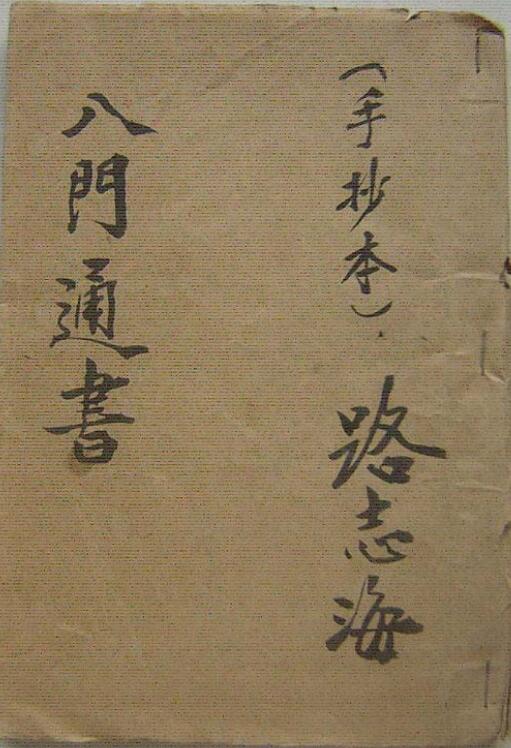 （手抄本）
路志海
八門通書